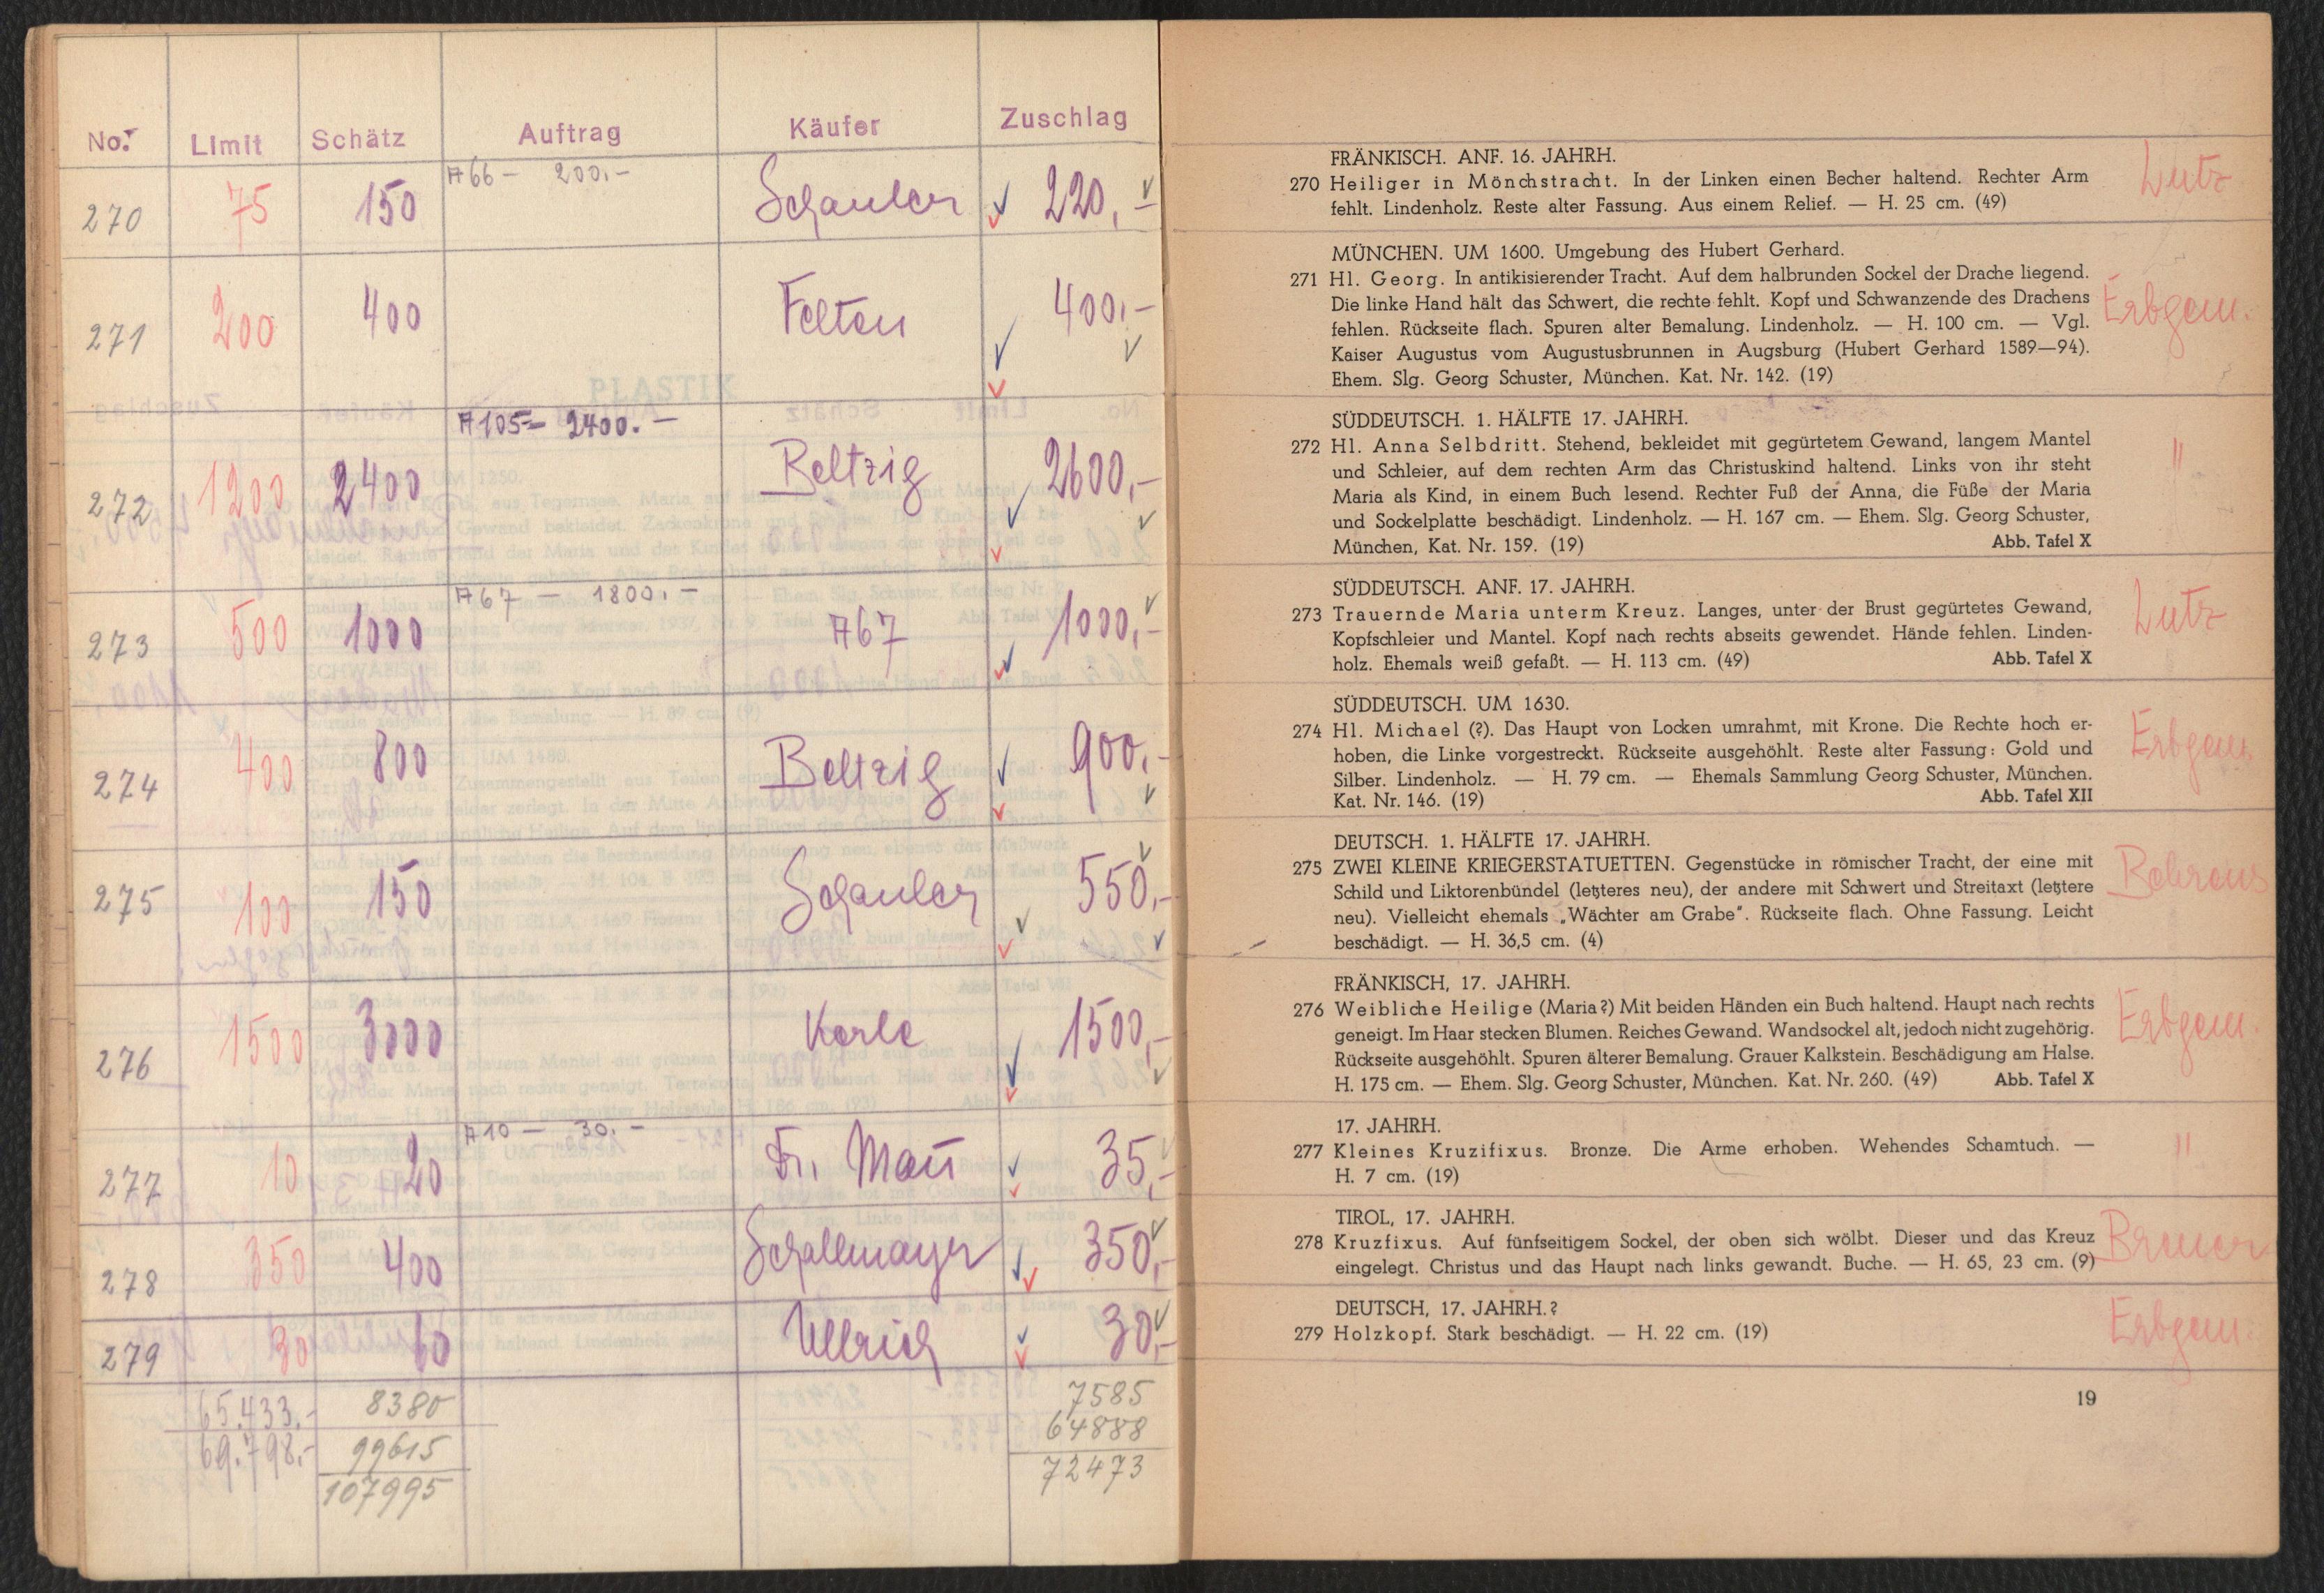 No. Limit Schätz Auftrag Käufer Zuschlag
A66 - 200.-
270 75 150 Schauler 220,-
271 200 400 Felten 400,-
A105 - 2400.-
272 1200 2400 Beltzig 2600,-
A67 - 1800.-
273 500 1000 A67 1000,-
274 400 800 Beltzig 900,-
275 100 150 Schauler 550,-
276 1500 3000 Karle 1500,-
A10 - 30.-
277 10 20 Fr. 35,-
278 350 400 Schallmayer 350,-
279 30 60 Ullrich 30,-
65.433.- 8380 7585
69.798.- 99615 64888
107995 72473
PLASTIK
FRÄNKISCH. ANF. 16. JAHRH.
270 Heiliger in Mönchstracht. In der Linken einen Becher haltend. Rechter Arm Lutz
fehlt. Lindenholz. Reste alter Fassung. Aus einem Relief. — H. 25 cm. (49)
MÜNCHEN. UM 1600. Umgebung des Hubert Gerhard.
271 Hl. Georg. In antikisierender Tracht. Auf dem halbrunden Sockel der Drache liegend.
Die linke Hand hält das Schwert, die rechte fehlt. Kopf und Schwanzende des Drachens Erbgem.
fehlen. Rückseite flach. Spuren alter Bemalung. Lindenholz. — H. 100 cm. — Vgl.
Kaiser Augustus vom Augustusbrunnen in Augsburg (Hubert Gerhard 1589—94).
Ehem. Slg. Georg Schuster, München. Kat. Nr. 142. (19)
SÜDDEUTSCH. 1. HÄLFTE 17. JAHRH.
272 Hl. Anna Selbdritt. Stehend, bekleidet mit gegürtetem Gewand, langem Mantel "
und Schleier, auf dem rechten Arm das Christuskind haltend. Links von ihr steht
Maria als Kind, in einem Buch lesend. Rechter Fuß der Anna, die Füße der Maria
und Sockelplatte beschädigt. Lindenholz. — H. 167 cm. — Ehem. Slg. Georg Schuster,
München, Kat. Nr. 159. (19) Abb. Tafel X
SÜDDEUTSCH. ANF. 17. JAHRH.
273 Trauernde Maria unterm Kreuz. Langes, unter der Brust gegürtetes Gewand, Lutz
Kopfschleier und Mantel. Kopf nach rechts abseits gewendet. Hände fehlen. Linden-
holz. Ehemals weiß gefaßt. — H. 113 cm. (49) Abb. Tafel X
SÜDDEUTSCH. UM 1630.
274 Hl. Michael (?). Das Haupt von Locken umrahmt, mit Krone. Die Rechte hoch er- Erbgem.
hoben, die Linke vorgestreckt. Rückseite ausgehöhlt. Reste alter Fassung: Gold und
Silber. Lindenholz. — H. 79 cm. — Ehemals Sammlung Georg Schuster, München.
Kat. Nr. 146. (19) Abb. Tafel XII
DEUTSCH. 1. HÄLFTE 17. JAHRH.
275 ZWEI KLEINE KRIEGERSTATUETTEN. Gegenstücke in römischer Tracht, der eine mit Behrens
Schild und Liktorenbündel (letzteres neu), der andere mit Schwert und Streitaxt (letztere
neu). Vielleicht ehemals „Wächter am Grabe". Rückseite flach. Ohne Fassung. Leicht
beschädigt. — H. 36,5 cm. (4)
FRÄNKISCH, 17. JAHRH.
276 Weibliche Heilige (Maria?) Mit beiden Händen ein Buch haltend. Haupt nach rechts Erbgem.
geneigt. Im Haar stecken Blumen. Reiches Gewand. Wandsockel alt, jedoch nicht zugehörig.
Rückseite ausgehöhlt. Spuren älterer Bemalung. Grauer Kalkstein. Beschädigung am Halse.
H. 175 cm. — Ehem. Slg. Georg Schuster, München. Kat. Nr. 260. (49) Abb. Tafel X
17. JAHRH.
277 Kleines Kruzifixus. Bronze. Die Arme erhoben. Wehendes Schamtuch. — "
H. 7 cm. (19)
TIROL, 17. JAHRH.
278 Kruzfixus. Auf fünfseitigem Sockel, der oben sich wölbt. Dieser und das Kreuz
eingelegt. Christus und das Haupt nach links gewandt. Buche. — H. 65, 23 cm. (9)
DEUTSCH, 17. JAHRH.?
279 Holzkopf. Stark beschädigt. — H. 22 cm. (19) Erbgem.
19